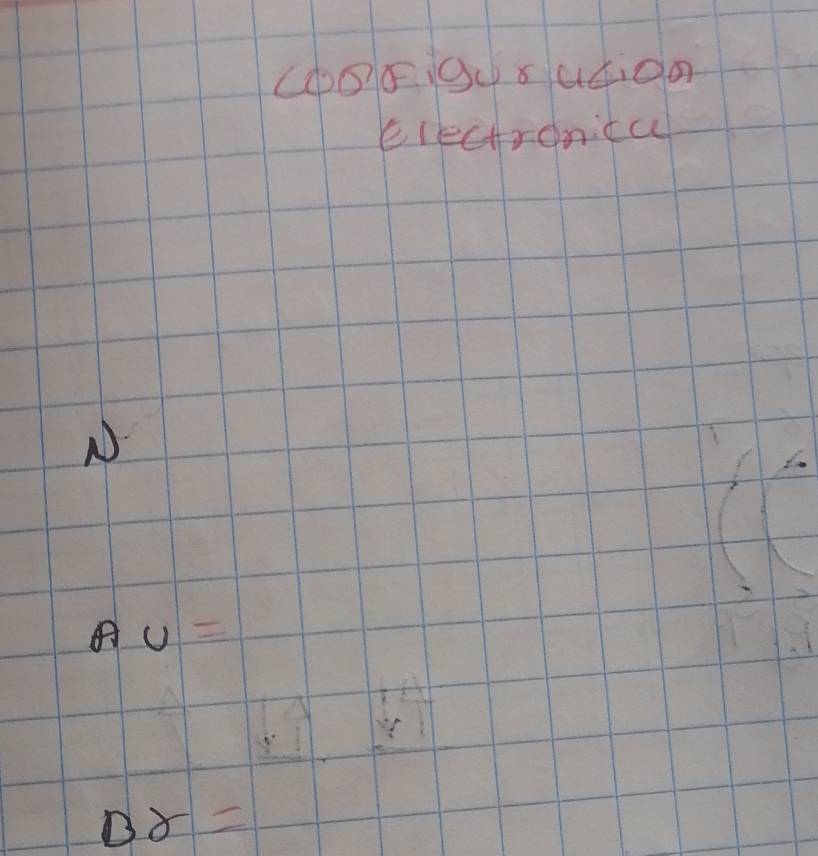 configuracion
electronica
N
AU =
Br =